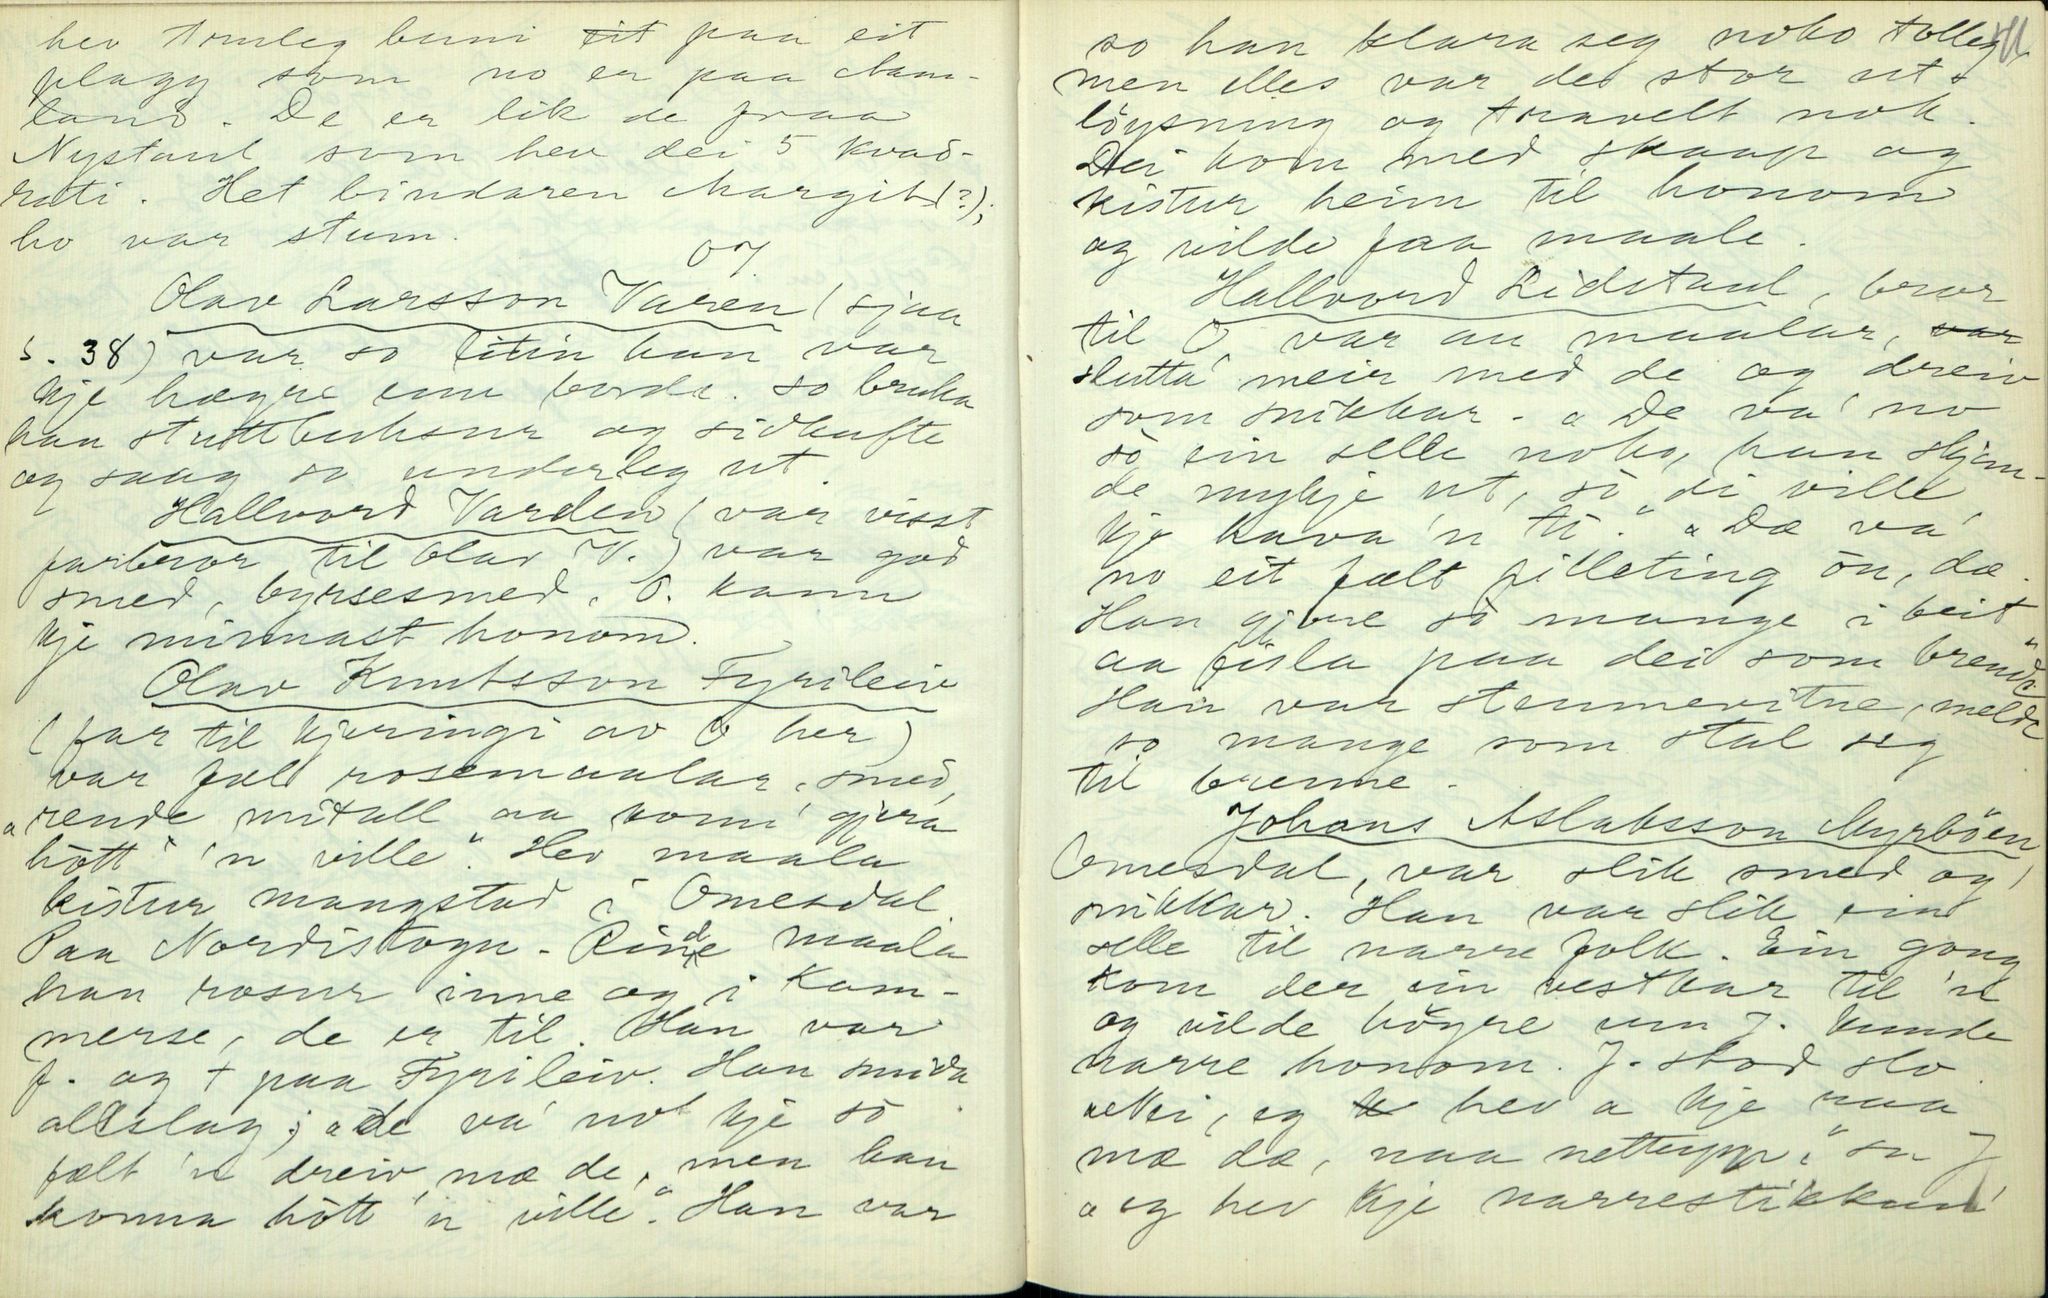 hev truleg buni eit paa eit
plagg som no er paa Nam-
land. De er lik de fraa
Nystaul som hev dei 5 kvad-
rati. Het bindaren Margit (?),
ho var stum.
07
Olav Larsson Varen (sjaa
s. 38) var so litin han var
kje høgre enn borde. So bruka
han stuttbuksur og sidkufte
og saag so underleg ut.
Hallvord Varden (var visst
farbror til Olav V.) var god
smed, byrsesmed. O. kann
kje minnast honom.
Olav Knutsson Fyrileiv
(far til kjeringi av O her)
var fæl rosemaalar, smed,
"rende mitall aa konn' gjera
hòtt 'n ville". Hev maala
kistur mangstad i Omesdal.
Paa Nordistogn-Rinde maala
han rosur inne og i kam-
merse, de er til. Han var
f. og + paa Fyrileiv. Han smida
allslag; "de va' no kje so
fælt 'n dreiv mæ de, men han
konna hòtt 'n ville". Han var
so han klara seg noko tolleg
men elles var der stor ut-
løysning og travelt nok.
Dei kom med skaap og
kistur heim til honom
og vilde faa maale.
Hallvord Lidstaul, bror
til O var au maalar, var
slutta' meir med de og dreiv
som snikkar. "De va' no
so ein selle noko, han skjem-
de mykje ut, so di ville
kje hava 'n ti". "Dæ va'
no eit fælt pilleting òn, dæ.
Han gjore so mange i beit
aa fisla paa dei som brende"
Han var stemnevitne, melde
so mange som stal seg
til brenne.
Johans Aslaksson Myrbøen,
Omesdal, var slik smed og
snikkar. Han var slik ein
selle til narre folk. Ein gong
kom der ein vestkar til 'n
og vilde høyre um J. kunde
narre honom. J. stod slo
ekki, eg hev a kje naa
mæ dæ, naa nettupp," sa J
"eg hev kje narrestikkun'